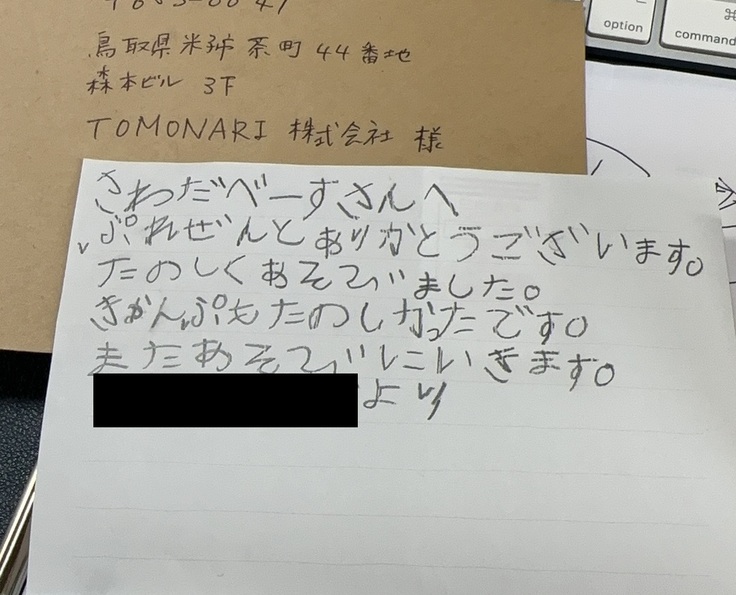 鳥取県米子市茶町44番地
森本ビル 3F
TOMONARI 株式会社 様
さわだべーずさんへ
ぷれぜんとありがとうございます。
たのしくあそびました。
きかんぷもたのしかったです。
またあそびにいきます。
より
option
command